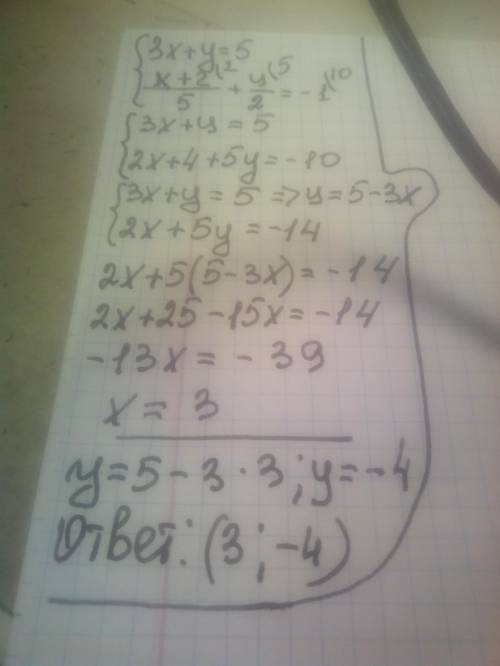 {3x+y=5
x+2\² / 5 + y\⁵ / 2 = -1\¹⁰
{3x+y=5
2x+4+5y=-10
{3x+y=5 => y=5-3x
2x+5y=-14
2x+5(5-3x)=-14
2x+25-15x=-14
-13x=-39
x=3
y=5-3·3; y=-4
Ответ: (3;-4)